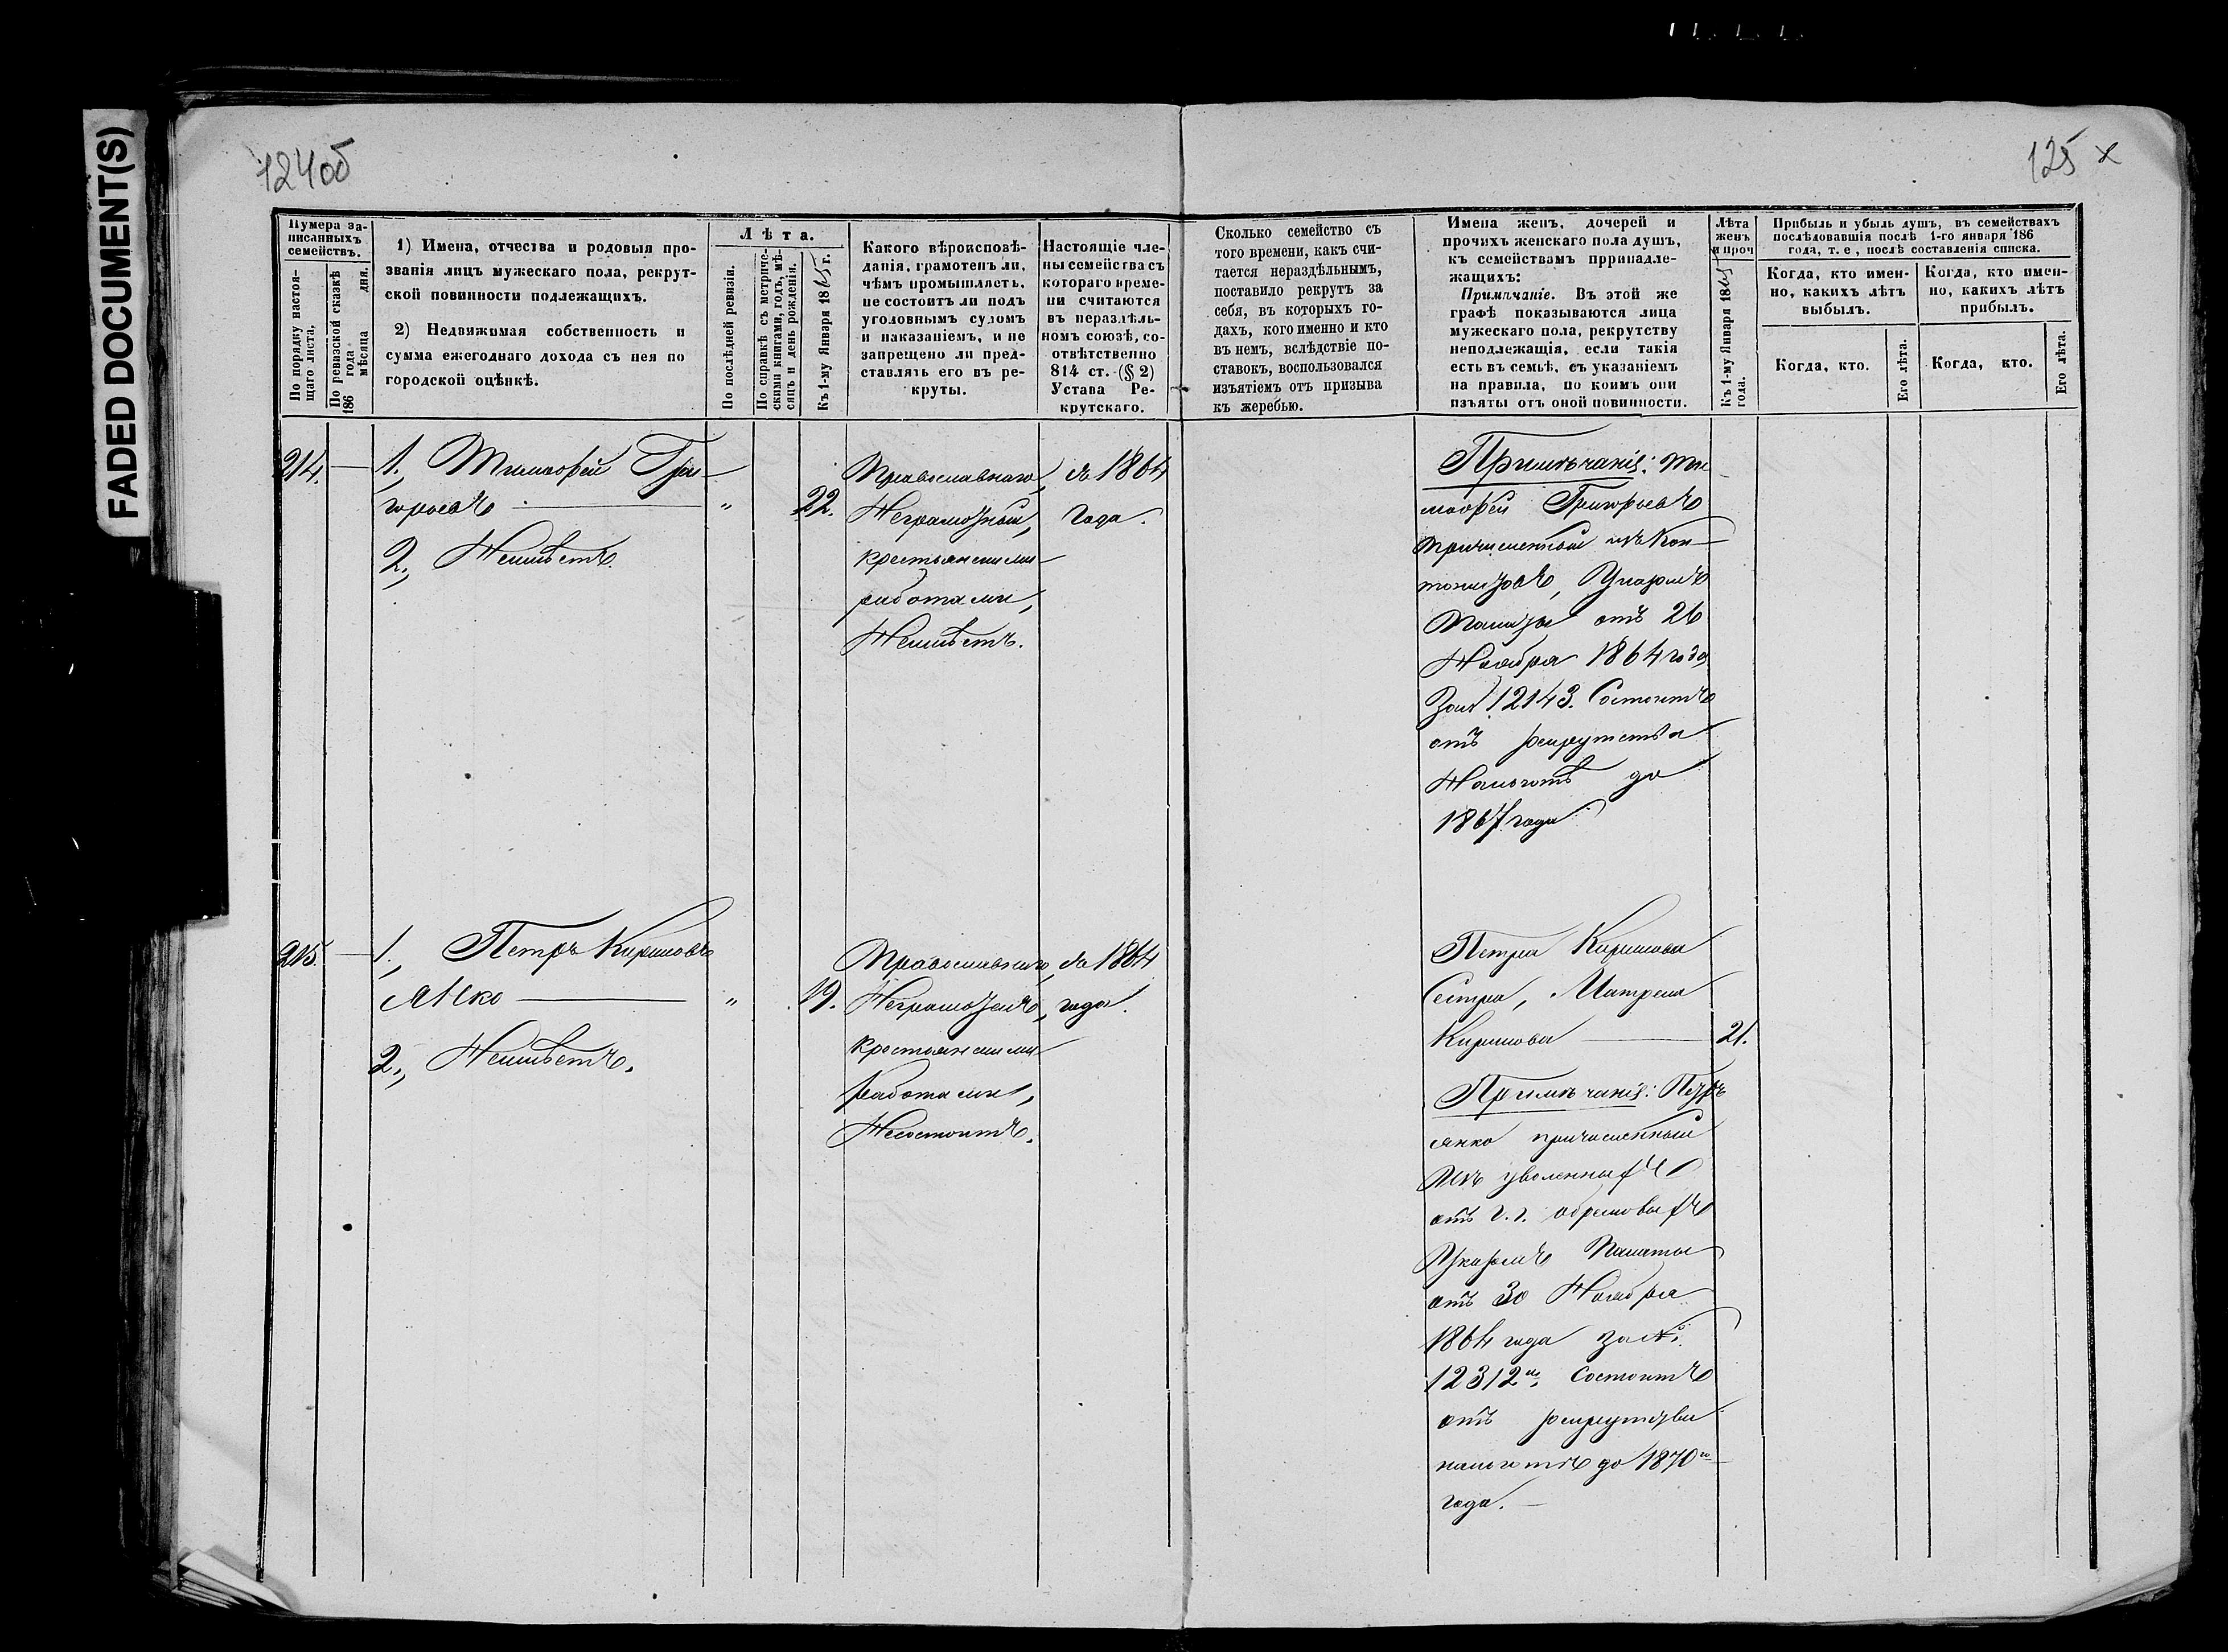 FADED DOCUMENT(S)
124об
125 х
Нумера записанныхъ семействъ.
По порядку настоящаго листа.
По ревизской сказкѣ 186 года мѣсяца дня.
1) Имена, отчества и родовыя прозванія лицъ мужескаго пола, рекрутской повинности подлежащихъ.
2) Недвижимая собственность и сумма ежегоднаго дохода съ нея по городской оцѣнкѣ.
Лѣта.
По послѣдней ревизіи.
По справкѣ съ метрическими книгами, годъ, мѣсяцъ и день рожденія.
Къ 1-му Января 1865 г.
Какого вѣроисповѣданія, грамотенъ ли, чѣмъ промышляетъ, не состоитъ ли подъ уголовнымъ судомъ и наказаніемъ, и не запрещено ли представлять его въ рекруты.
Настоящіе члены семейства съ котораго времени считаются въ нераздѣльномъ союзѣ, соотвѣтственно 814 ст. (§ 2) Устава Рекрутскаго.
Сколько семейство съ того времени, какъ считается нераздѣльнымъ, поставило рекрутъ за себя, въ которыхъ годахъ, кого именно и кто въ немъ, вслѣдствіе поставокъ, воспользовался изъятіемъ отъ призыва къ жеребью.
Имена женъ, дочерей и прочихъ женскаго пола душъ, къ семействамъ прринадлежащихъ:
Примѣчаніе. Въ этой же графѣ показываются лица мужескаго пола, рекрутству неподлежащія, если такія есть въ семьѣ, съ указаніемъ на правила, по коимъ они изъяты отъ оной повинности.
Лѣта женъ и проч
Къ 1-му Января 1865 года.
Прибыль и убыль душъ, въ семействахъ послѣдовавшія послѣ 1-го января 186 года, т. е, послѣ составленія списка.
Когда, кто именно, какихъ лѣтъ выбылъ.
Когда, кто именно, какихъ лѣтъ прибылъ.
Когда, кто.
Его лѣта.
Когда, кто.
Его лѣта.
214.
1., Тимофей Гри-
горьевъ " 22.
2., Неимѣетъ.
Православнаго,
Неграмотный,
крестьянскими
работами,
Неимѣетъ.
съ 1864
года.
Примѣчаніе: Ти-
мофей Григорьевъ
причисленный изъ Кан-
тонистовъ, Указомъ
Палаты отъ 26
Ноября 1864 года
за № 12143. Состоитъ
отъ рекрутства
На льготѣ до
1867 года
215.
1., Петръ Кириловъ
Янко " 19.
2., Неимѣетъ.
Православнаго,
Неграмотенъ,
крестьянскими
Работами,
Несостоитъ.
съ 1864
года.
Петра Кирилова
Сестра, Матрена
Кирилова 21.
Примѣчаніе: Петръ
янко причисленный
Изъ уволенныхъ
отъ г.г.
Указомъ Палаты
отъ 30 Ноября
1864 года за №.
12312м. Состоитъ
отъ рекрутства
на льготѣ до 1870го
года.